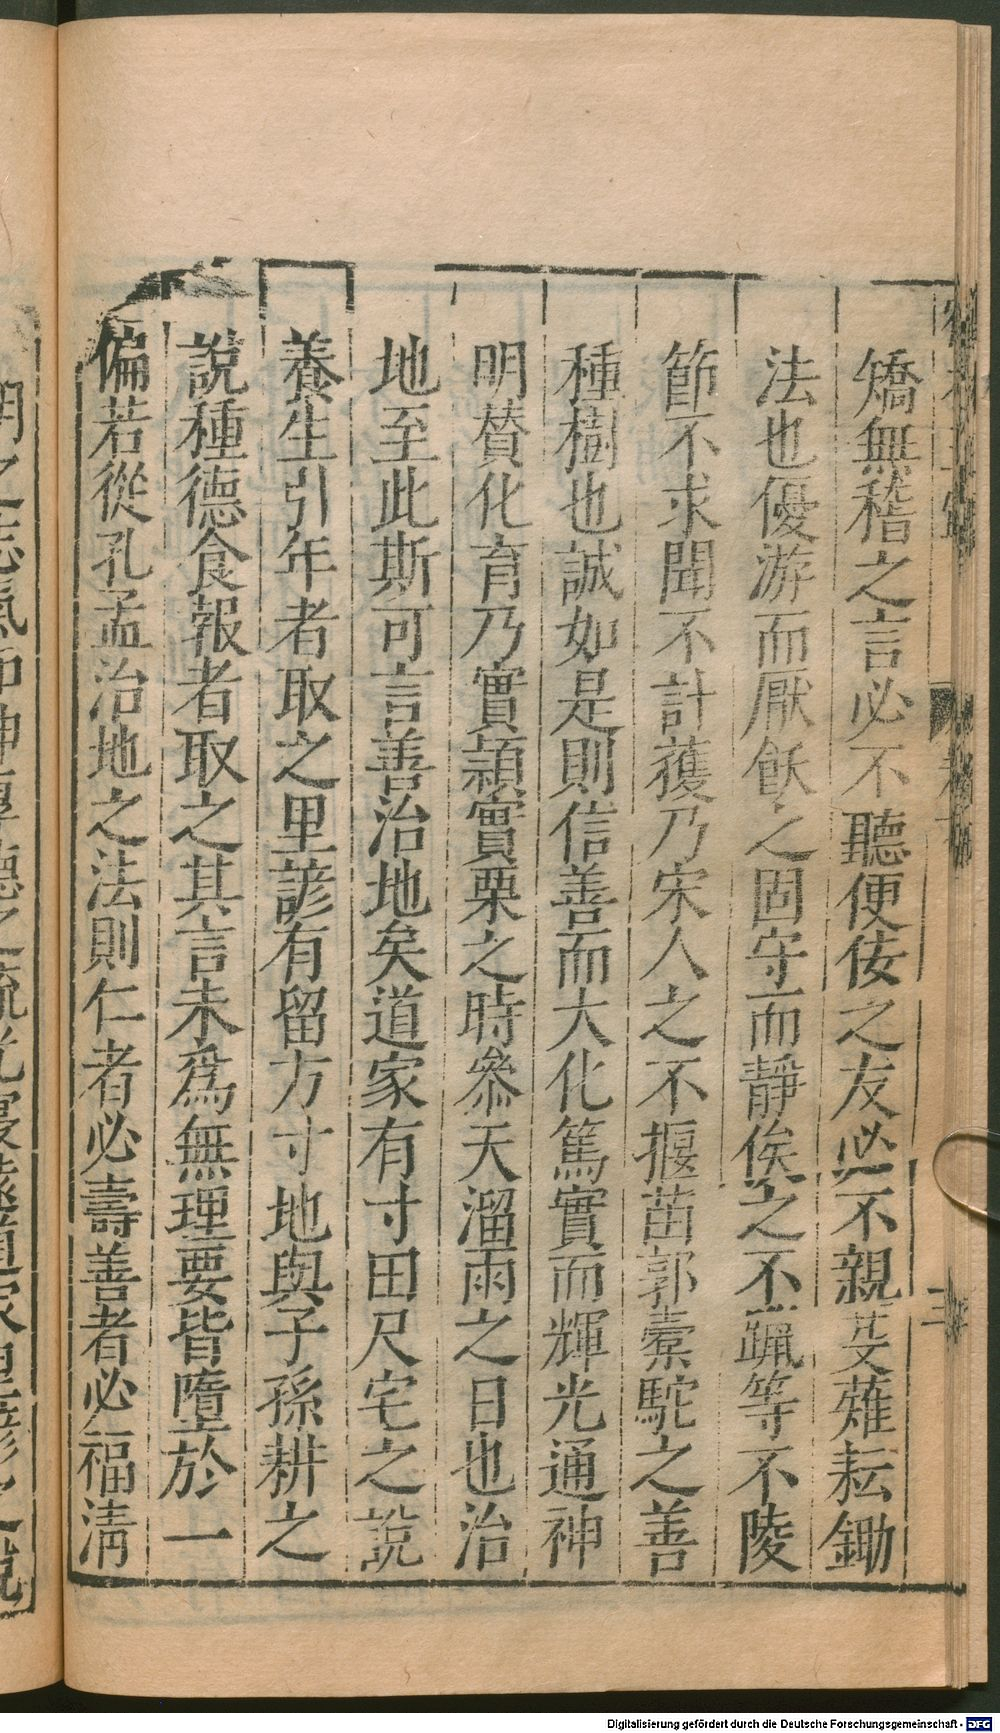 矯無稽之言必不聽便佞之友必不親芟薙耘鋤
法也優游而厭飫之固守而靜俟之不躐等不陵
節不求聞不計獲乃宋人之不揠苗郭橐駝之善
種樹也誠如是則信善而大化篤實而輝光通神
明賛化育乃實穎實栗之時叅天溜雨之日也治
地至此斯可言善治地矣道家有寸田尺宅之說
養生引年者取之里諺有留方寸地與子孫耕之
說種德食報者取之其言未爲無理要皆墮於一
偏若從孔孟治地之法則仁者必壽善者必福淸
Digitalisierung gefördert durch die Deutsche Forschungsgemeinschaft - DFG